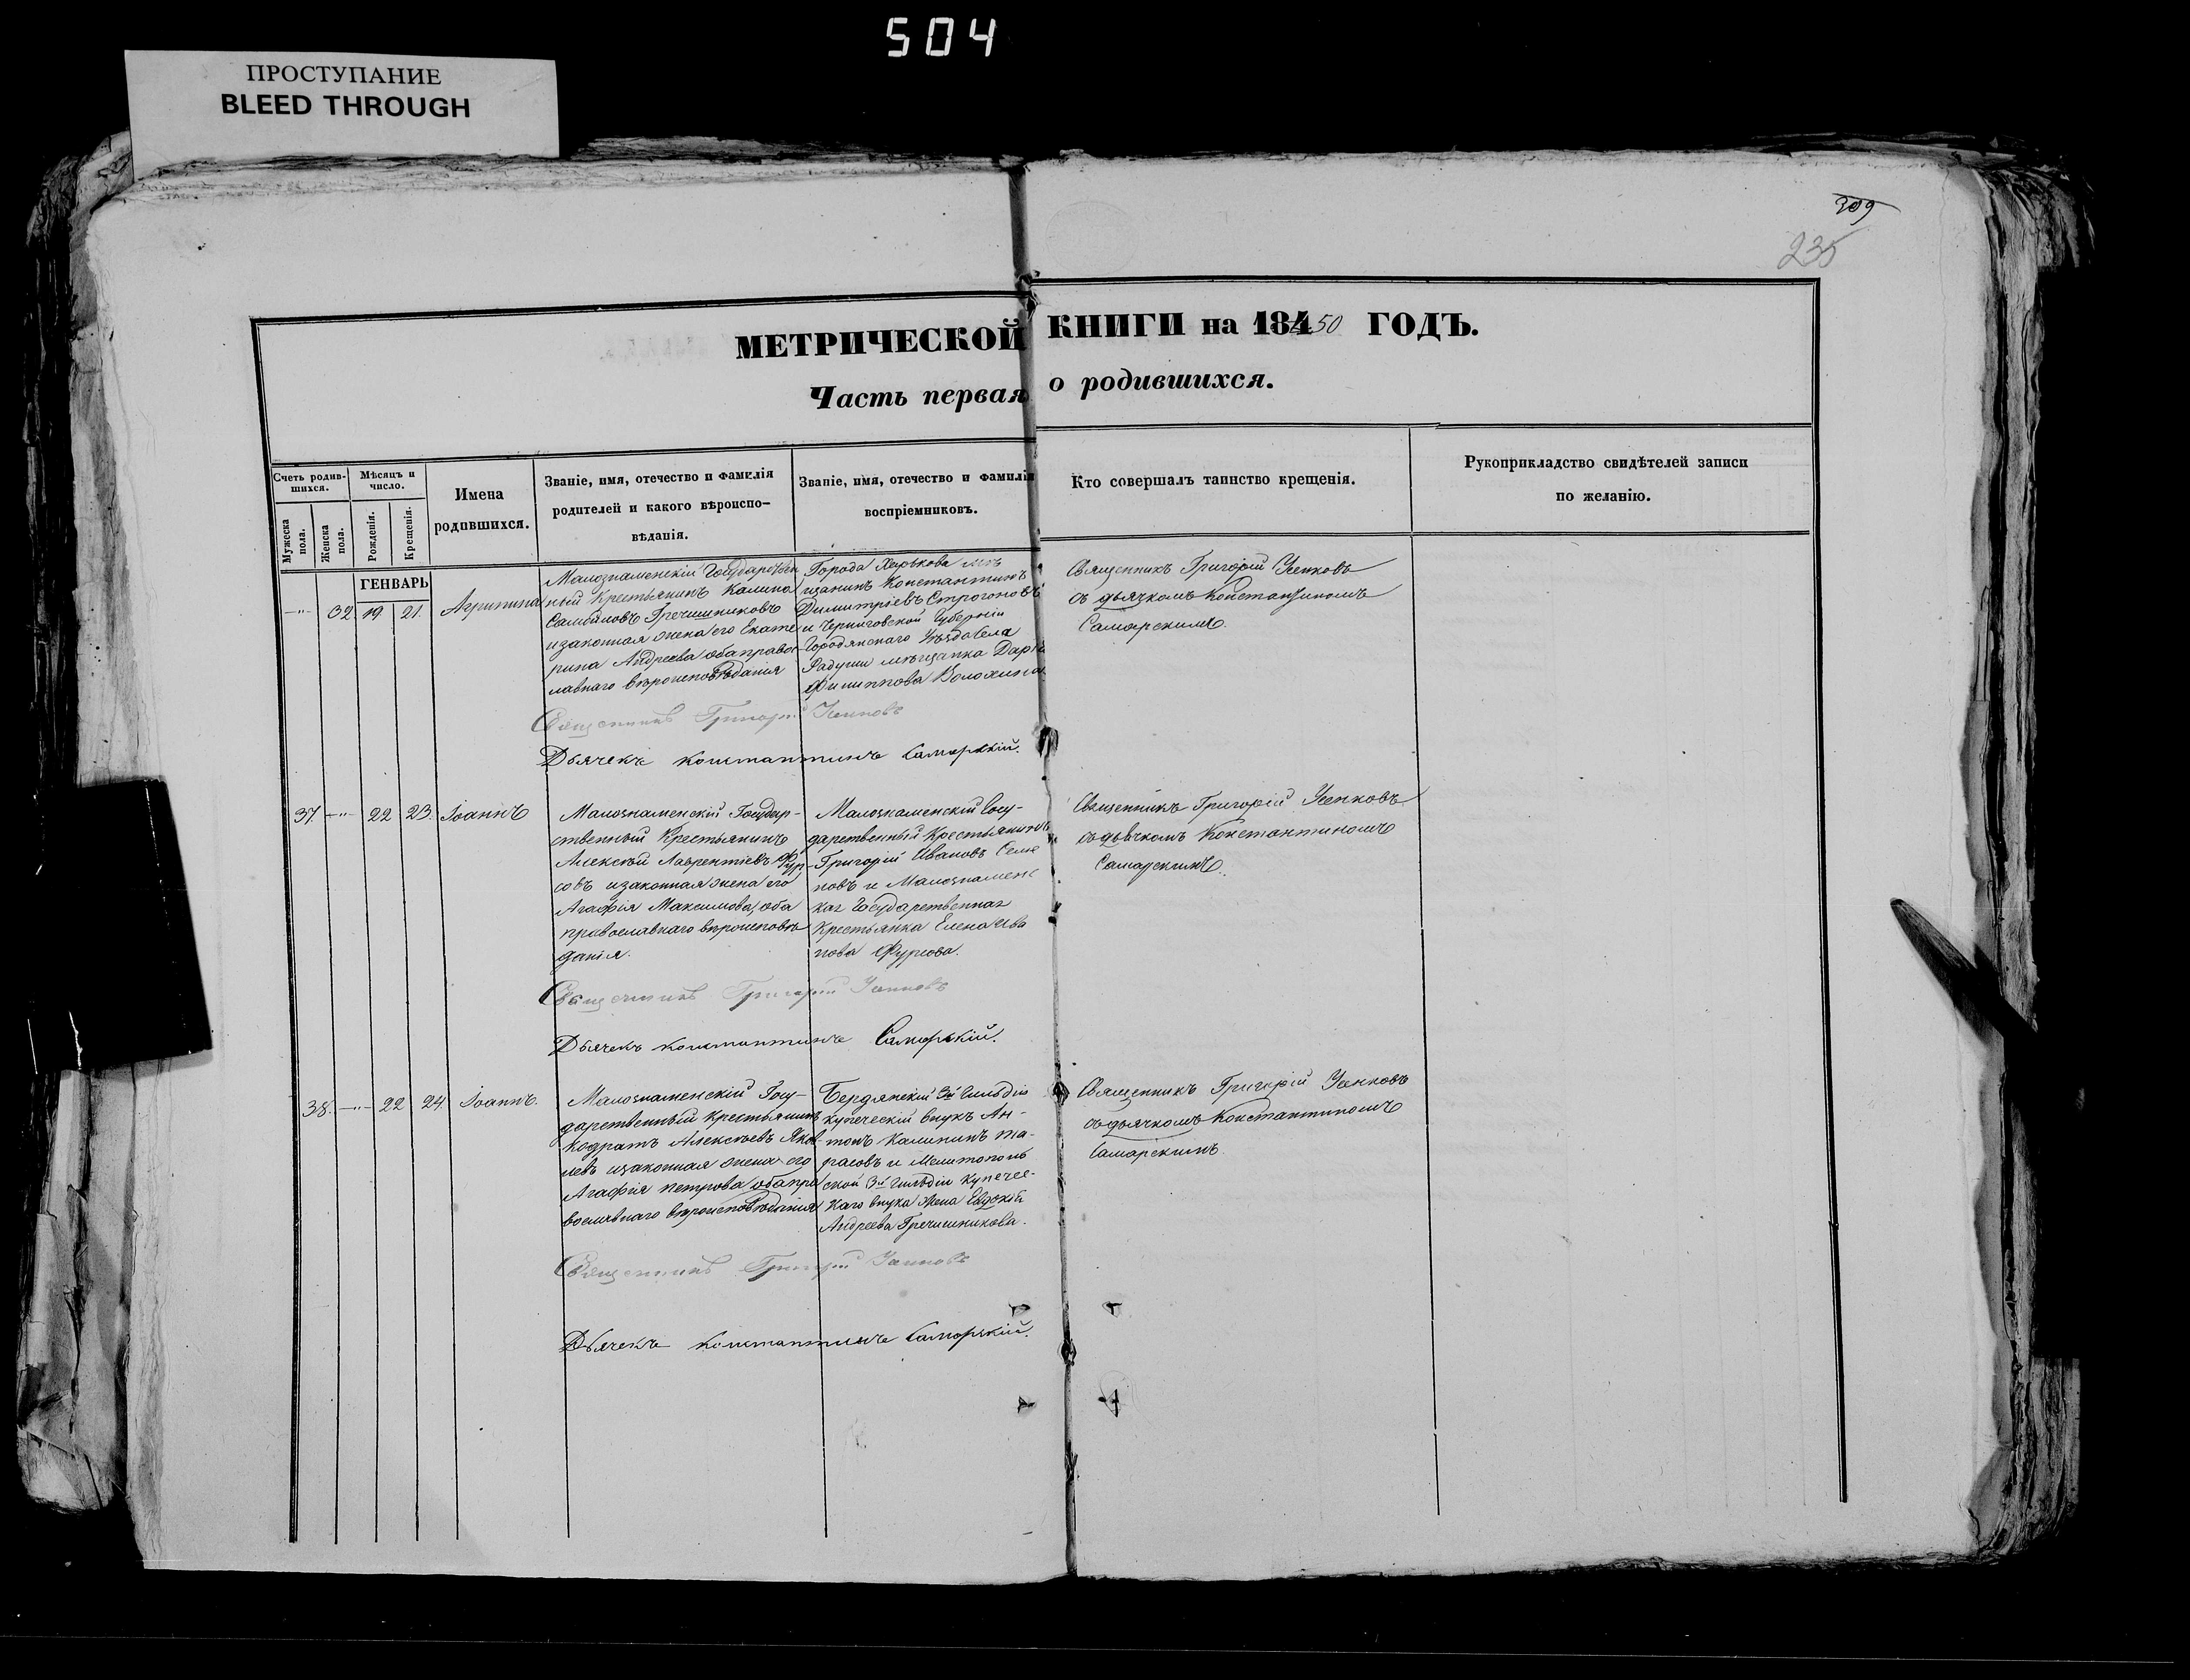 504
ПРОСТУПАНИЕ
BLEED THROUGH
309
235
МЕТРИЧЕСКОЙ КНИГИ на 184 50 ГОДЪ.
Часть первая о родившихся.
Счетъ родив-
шихся.
Мѣсяцъ и
число.
Мужеска
пола.
Женска
пола.
Рожденія.
Крещенія.
Имена
родившихся.
Званіе, имя, отечество и фамилія
родителей и какого вѣроиспо-
вѣданія.
Званіе, имя, отечество и фамилія
воспріемниковъ.
Кто совершалъ таинство крещенія.
Рукоприкладство свидѣтелей записи
по желанію.
ГЕНВАРЬ
—"— 32. 19 21. Агрипина
Малознаменскій Государствен
ный Крестьянинъ Калина
Самойловъ Гречишниковъ
изаконная жена его Екате
рина Андреева оба правос
лавнаго вѣроисповѣданія
Города Харькова мѣ
щанинъ Константинъ
Димитріевъ Строгоновъ
и Черниговской Губерніи
Городянскаго Уѣзда Села
мѣщанка Дарья
Филиппова
Священникъ Григорій Усенковъ
съ дьячкомъ Константиномъ
Самарскимъ.
Священникъ Григорій Усенковъ
Дьячекъ Константинъ Самарскій.
37. —"— 22 23. Іоаннъ
Малознаменскій Государ-
ственный Крестьянинъ
Алексѣй Лаврентіевъ Фур-
совъ изаконная жена его
Агафія Максимова, оба
православнаго вѣроисповѣ
данія.
Малознаменскій Госу-
дарственный Крестьянинъ
Григорій Ивановъ Семе
новъ и Малознаменс
кая Государственная
Крестьянка Елена Ива
нова Фурсова.
Священникъ Григорій Усенковъ
съ дьячкомъ Константиномъ
Самарскимъ.
Священникъ Григорій Усенковъ
Дьячекъ Константинъ Самарскій.
38. —"— 22 24. Іоаннъ.
Малознаменскій Госу-
дарственный Крестьянинъ
Кодратъ Алексѣевъ Яков
левъ изаконная жена его
Агафія Петрова оба пра
вославнаго вѣроисповѣданія
Бердянскій 3й Гильдіи
купеческій внукъ Ан-
тонъ Калининъ Та-
расовъ и Мелитополь
ской 3й Гильдіи Купечес-
каго внука жена Евдокія
Андреева Гречишникова.
Священникъ Григорій Усенковъ
съ дьячкомъ Константиномъ
Самарскимъ.
Священникъ Григорій Усенковъ
Дьячекъ Константинъ Самарскій.